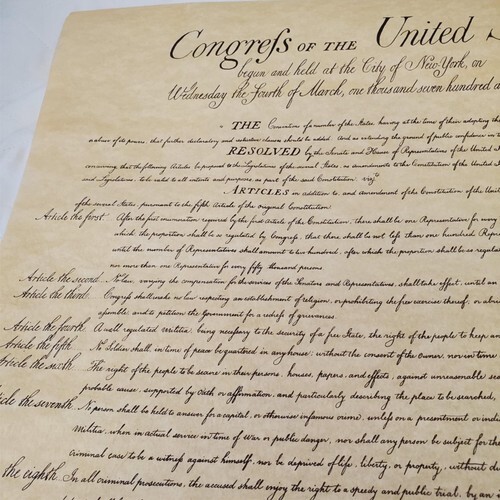 Congreſs OF THE United
begun and held at the City of New York, on
Wednesday the Fourth of March, one thousand seven hundred a
THE Conventions of a number of the States having at the time of their adopting the
abuse of its powers, that further declaratory and restrictive clauses should be added. And as extending the ground of public confidence in
RESOLVED by the Senate and House of Representatives of the United
concurring that the following Articles be proposed to the Legislatures of the several States, as amendments to the Constitution of the United
said Legislatures, to be valid to all intents and purposes, as part of the said Constitution viz.
ARTICLES in addition to, and amendment of the Constitution of the United
of the several States, pursuant to the fifth Article of the original Constitution.
Article the first. After the first enumeration required by the first Article of the Constitution, there shall be one Representative for every
which the proportion shall be so regulated by Congreſs, that there shall not be less than one hundred Repre
until the number of Representatives shall amount to two hundred, after which the proportion shall be so regulated
nor more than one Representative for every fifty thousand persons
Article the second. No law, varying the compensation for the services of the Senators and Representatives, shall take effect, until an
Article the third. Congreſs shall make no law respecting an establishment of religion, or prohibiting the free exercise thereof, or abri
aſsemble, and to petition the Government for a redreſs of grievances.
Article the fourth. A well regulated Militia, being neceſsary to the security of a free State, the right of the people to keep an
Article the fifth. No Soldier shall, in time of peace be quartered in any house, without the consent of the Owner, nor in time
Article the sixth. The right of the people to be secure in their persons, houses, papers, and effects, against unreasonable sea
probable cause, supported by Oath or affirmation, and particularly describing the place to be searched,
cle the seventh. No person shall be held to answer for a capital, or otherwise infamous crime, unleſs on a presentment or indi
Militia, when in actual service in time of War or public danger; nor shall any person be subject for the
Criminal case to be a witneſs against himself, nor be deprived of life, liberty, or property, without due
the eighth. In all criminal prosecutions, the accused shall enjoy the right to a speedy and public trial, by an